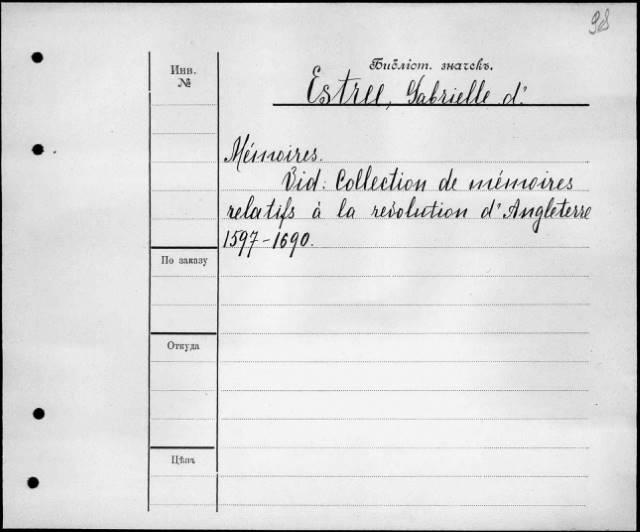 98
Инв.
№
Библіот. значекъ.
Estree, Gabrielle d'
Mémoires.
Vid: Collection de mémoires
relatifs à la revolution d'Angleterre
1597-1690.
По заказу
Откуда
Цѣна